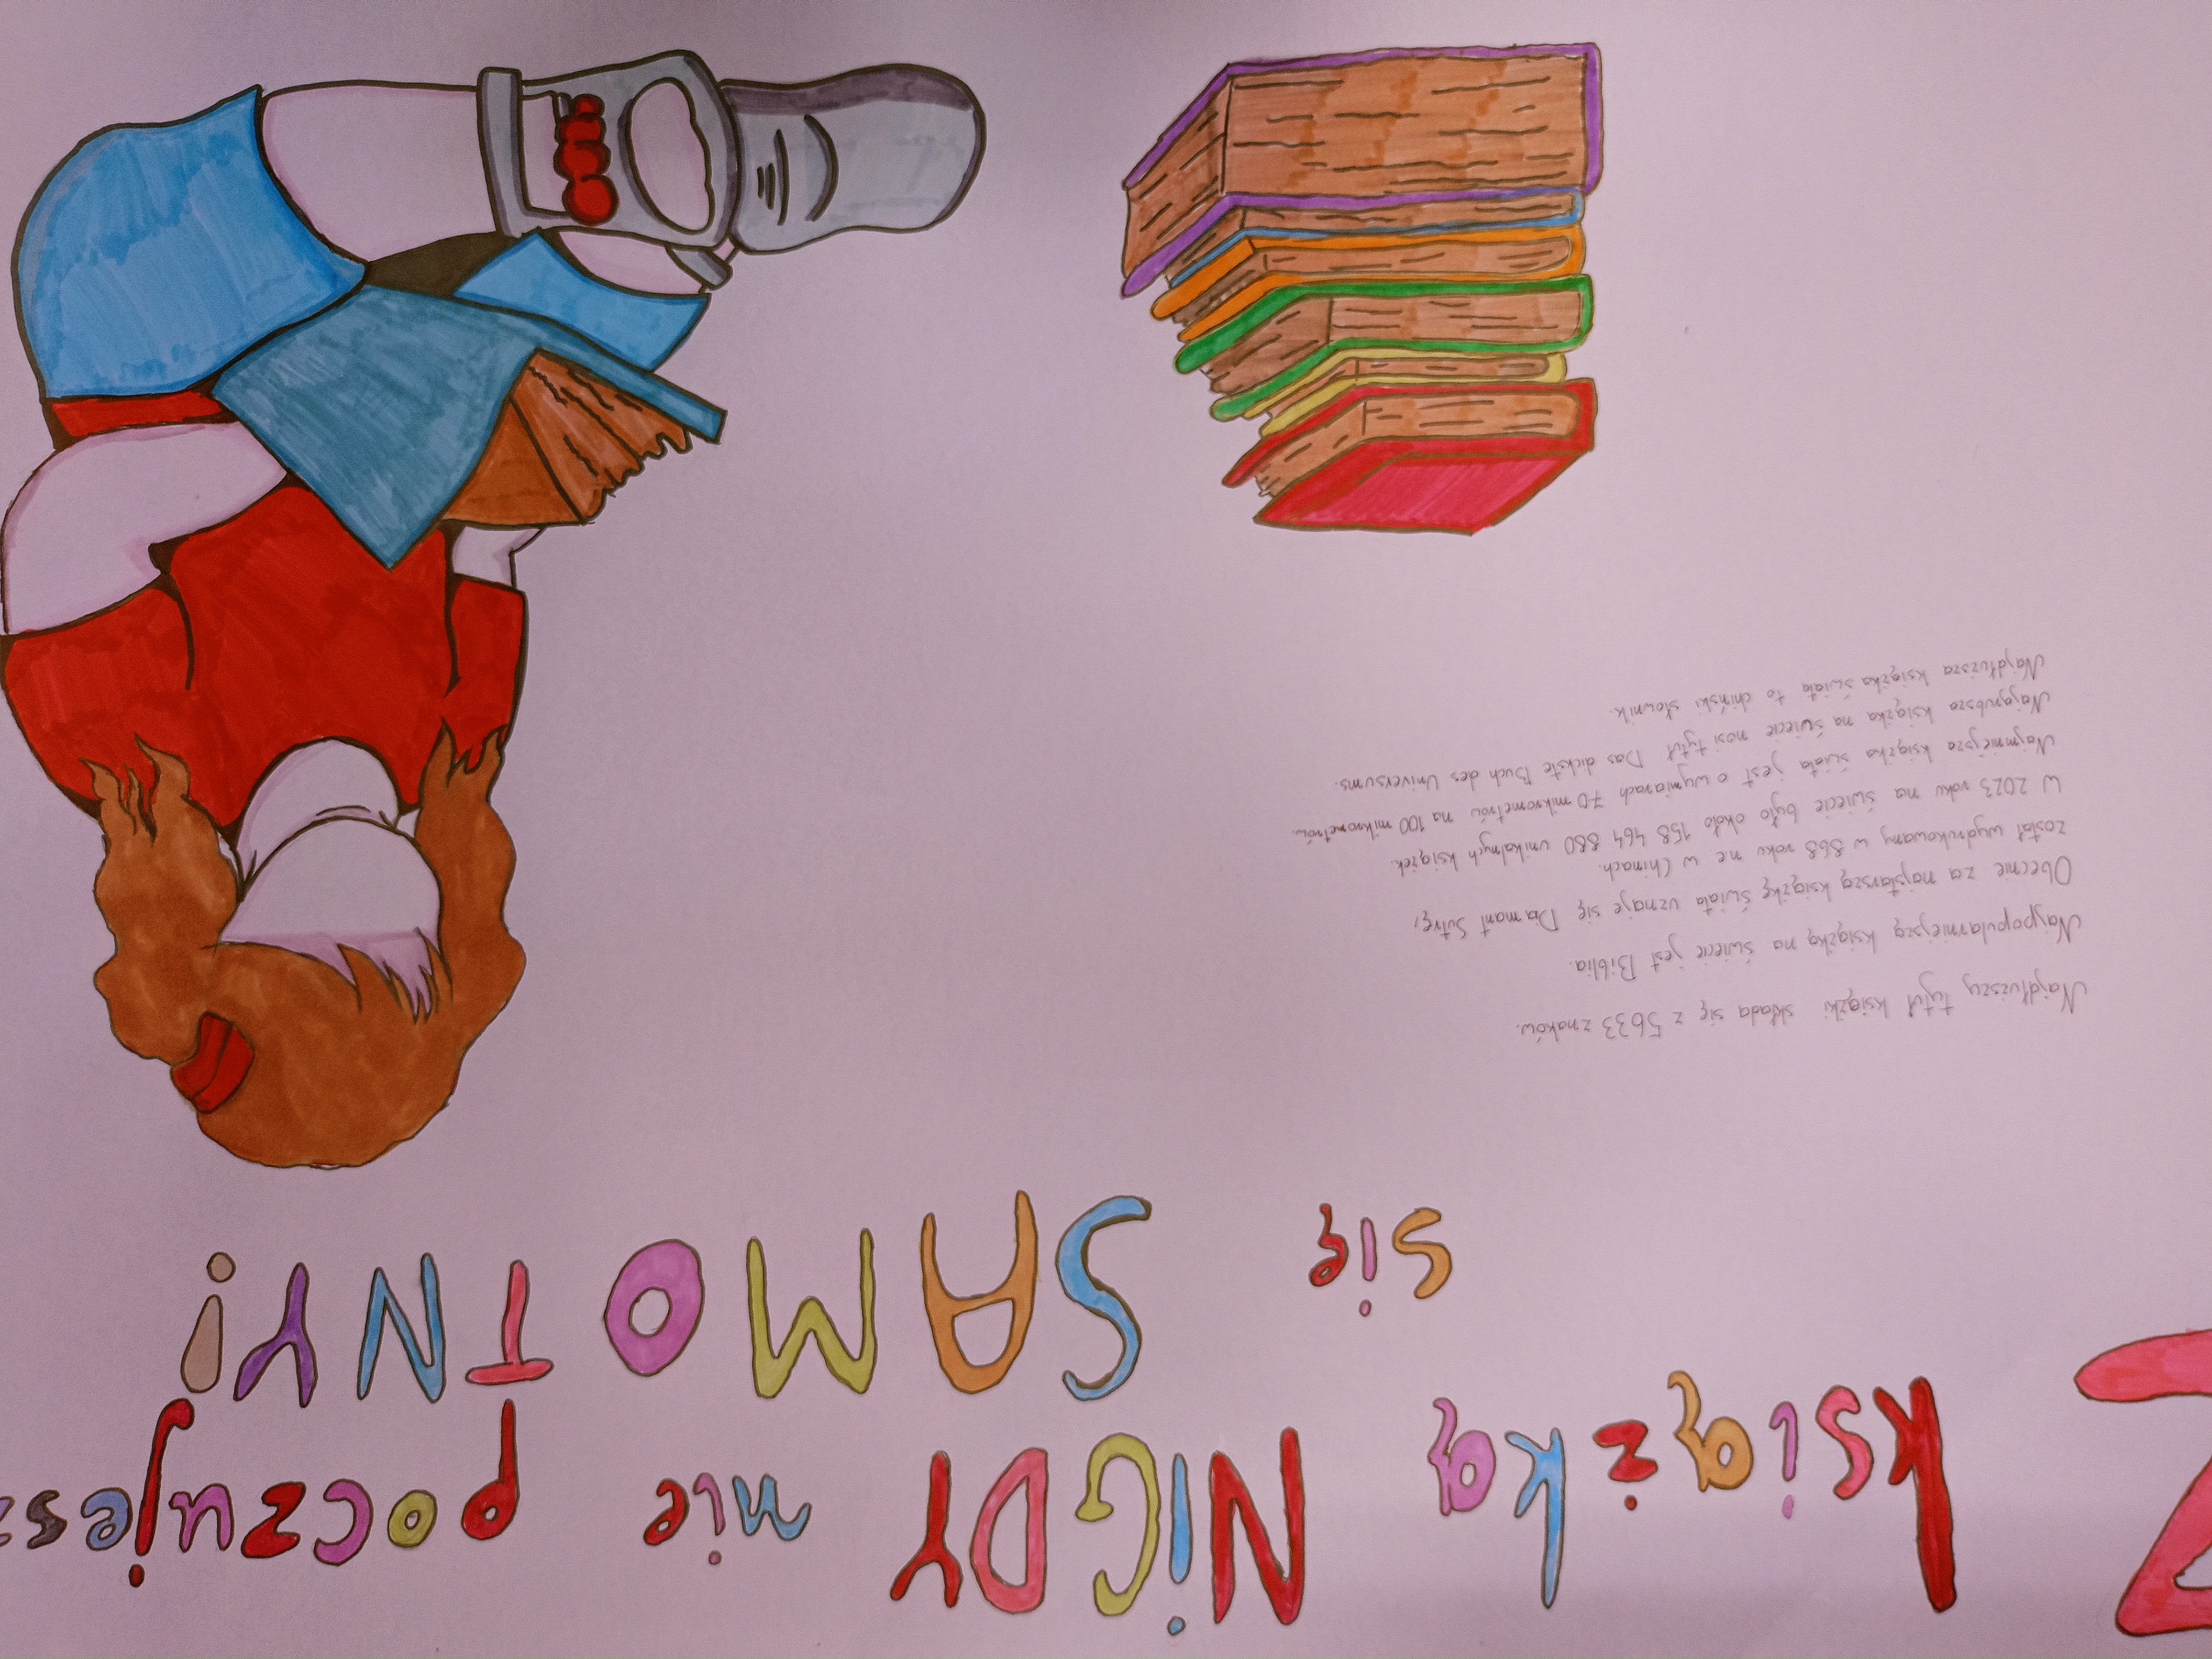 Z książką NiGDY nie poczujesz
się SAMOTNY!
Najdłuższy tytuł książki składa się z 5633 znaków.
Najpopularniejszą książką na świecie jest Biblia.
Obecnie za najstarszą książkę świata uznaje się Diamant Sutrę,
został wydrukowany w 868 roku ne w Chinach.
W 2023 roku na świecie było około 158 464 880 unikalnych książek.
Najmniejsza książka świata jest o wymiarach 70 mikrometrów na 100 mikrometrów.
Najgrubsza książka na świecie nosi tytuł Das dickste Buch des Universums.
Najdłuższa książka świata to chiński słownik.